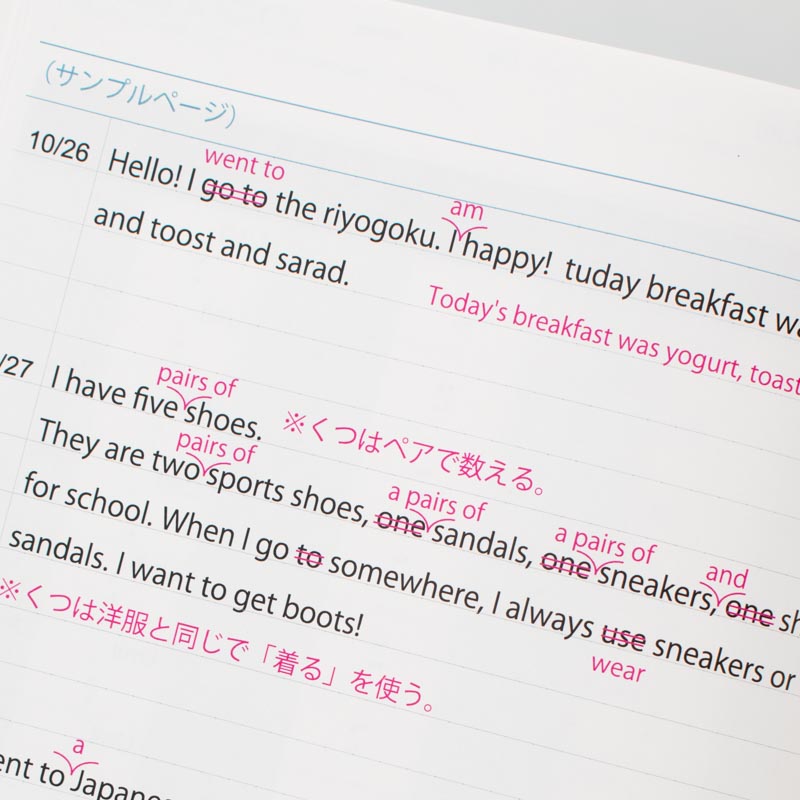 (サンプルページ)
went to
10/26 Hello! I go to the riyogoku. I happy! tuday breakfast
am
and toost and sarad.
Today's breakfast was yogurt, toast
pairs of
/27 I have five shoes. ※くつはペアで数える。
pairs of
a pairs of
a pairs of
and
They are two sports shoes, one sandals, one sneakers, one
for school. When I go to somewhere, I always use sneakers or
wear
sandals. I want to get boots!
※くつは洋服と同じで「着る」を使う。
a
to